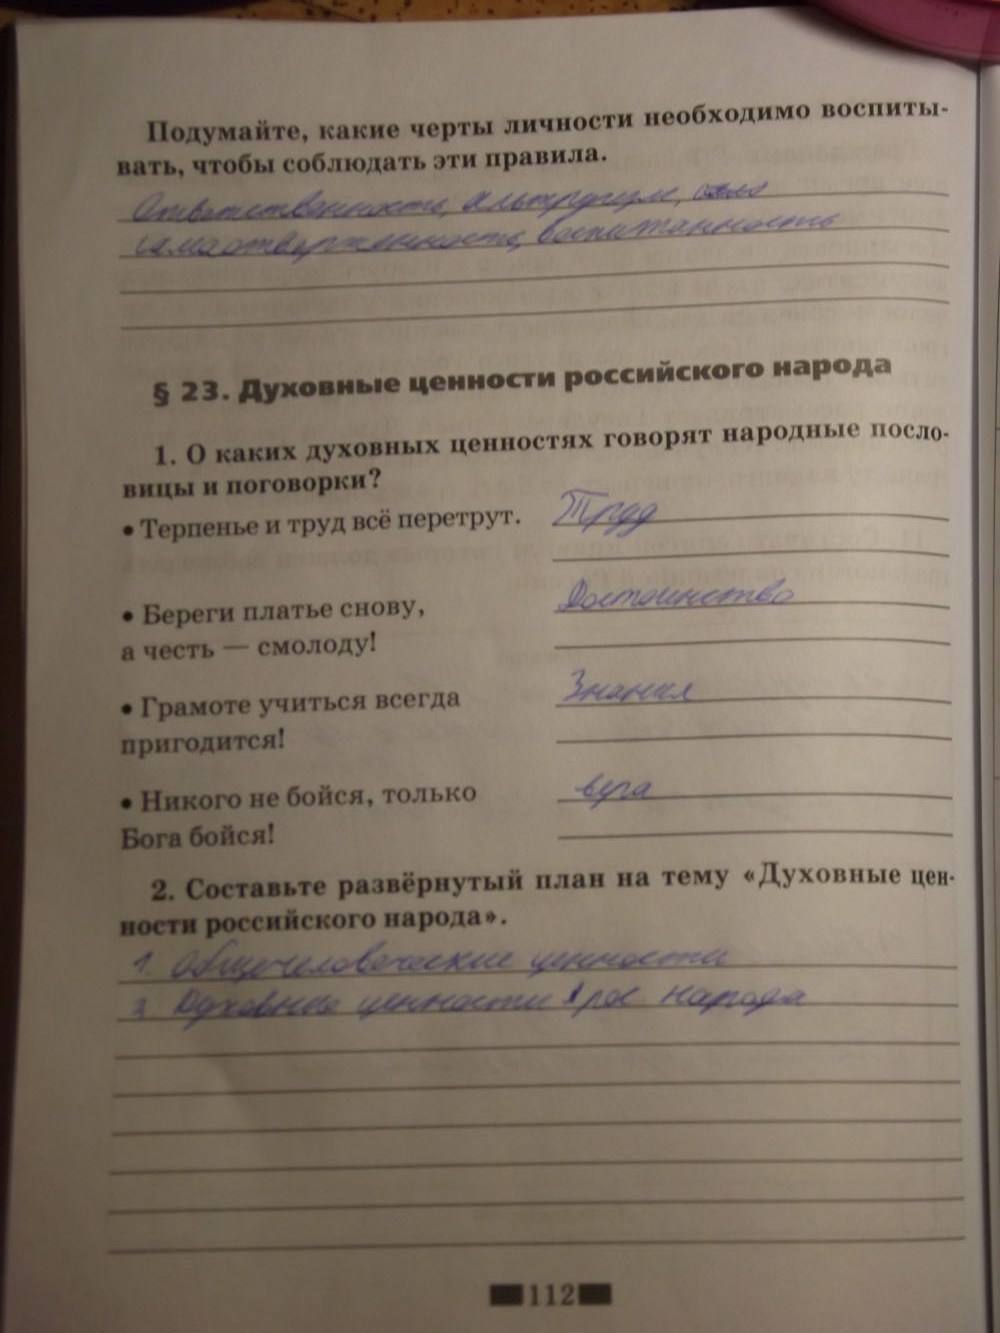 Подумайте, какие черты личности необходимо воспиты-
вать, чтобы соблюдать эти правила.
Ответственность, альтруизм,
самоотверженность, воспитанность
§ 23. Духовные ценности российского народа
1. О каких духовных ценностях говорят народные посло-
вицы и поговорки?
• Терпенье и труд всё перетрут. Труд
• Береги платье снову, Достоинство
а честь — смолоду!
• Грамоте учиться всегда Знания
пригодится!
• Никого не бойся, только вера
Бога бойся!
2. Составьте развёрнутый план на тему «Духовные цен-
ности российского народа».
1. Общечеловеческие ценности
Духовные ценности рос народа
112